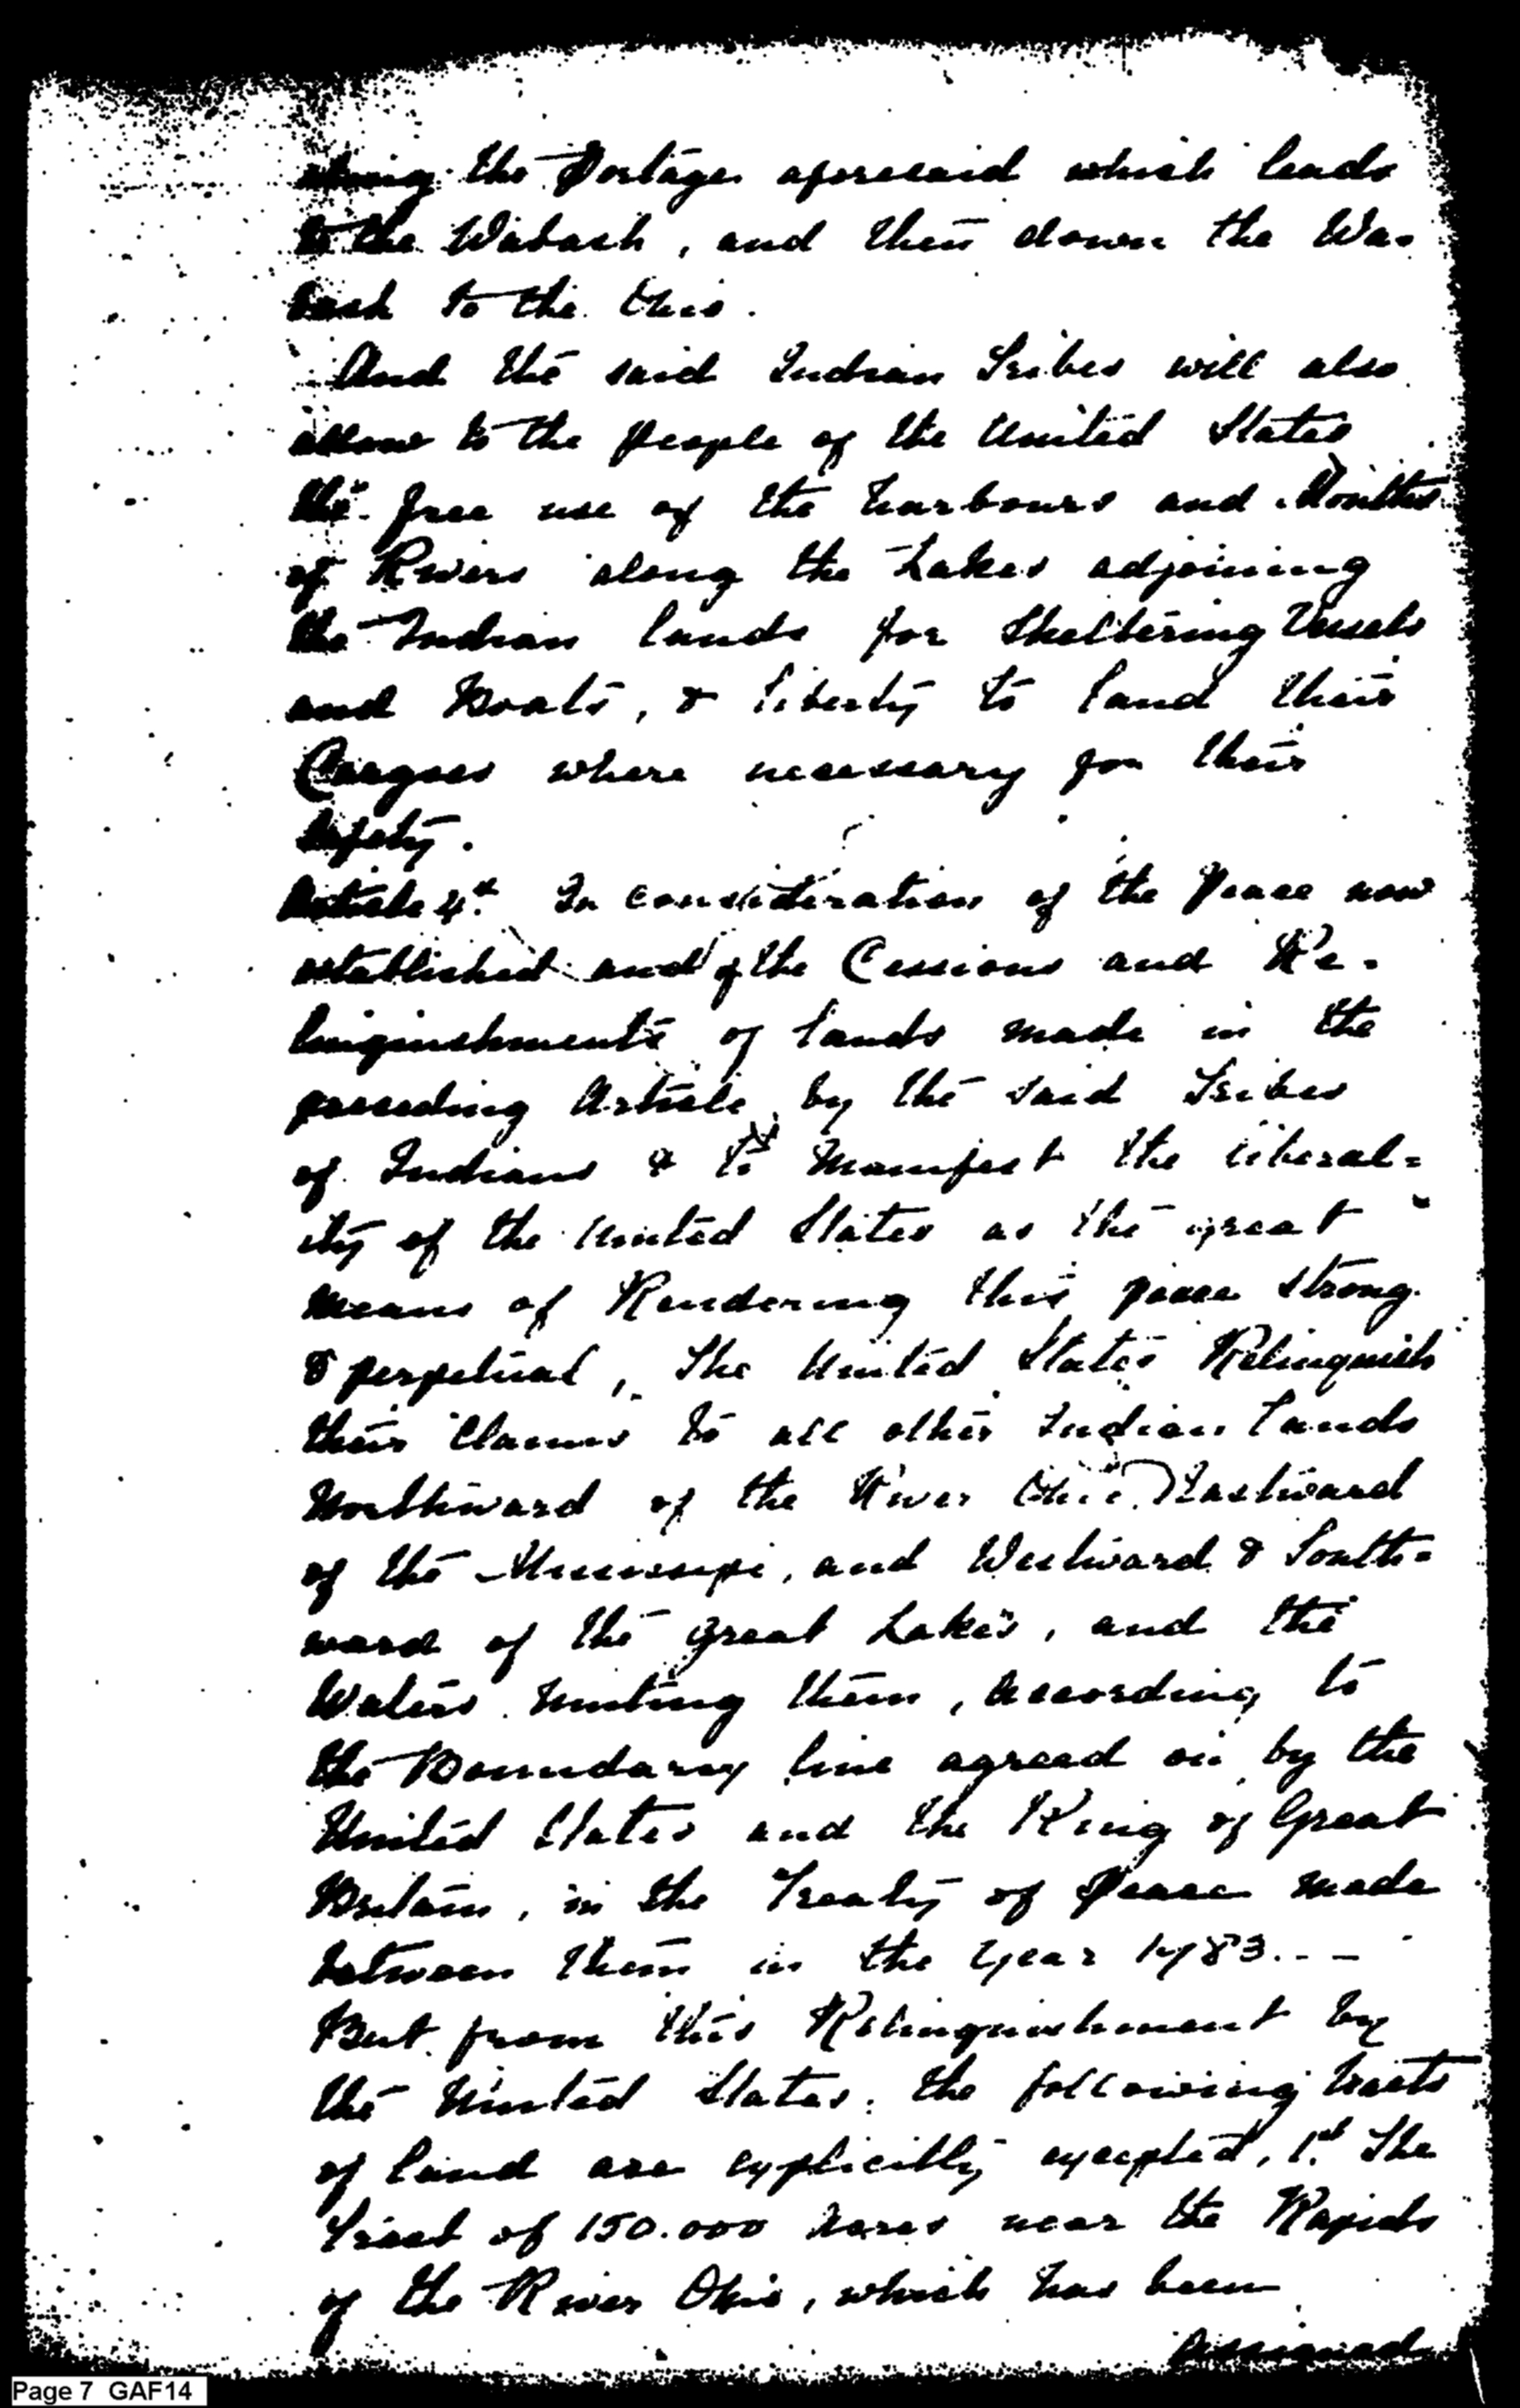 along the Portage aforesaid which leads
to the Wabash, and then down the Wa-
bash to the Ohio.
And the said Indian Tribes will also
allow to the people of the United States
the free use of the harbours and Mouths
of Rivers along the Lakes adjoining
the Indian lands for Sheltering Vessels
and Boats, & liberty to land their
Cargoes where necessary for their
safety.
Article 4th In consideration of the Peace now
established and of the Cessions and Re-
linquishments of lands made in the
preceeding Article by the said Tribes
of Indians & to Manifest the liberal=
ity of the United States as the great
means of Rendering this peace strong
& perpetual, The United States Relinquish
their Claims to all other Indian lands
Northward of the River Ohio, Eastward
of the Mississipi, and Westward & South=
ward of the great Lakes, and the
Waters uniting them, according to
the Boundary line agreed on by the
United States and the King of Great
Britain, in the Treaty of Peace made
between them in the year 1783. - -
But from this Relinquishment by
the United States, the following tracts
of land are explicitly excepted, 1st The
Tract of 150.000 Acres near the Rapids
of the River Ohio, which has been
Assigned
Page 7 GAF14